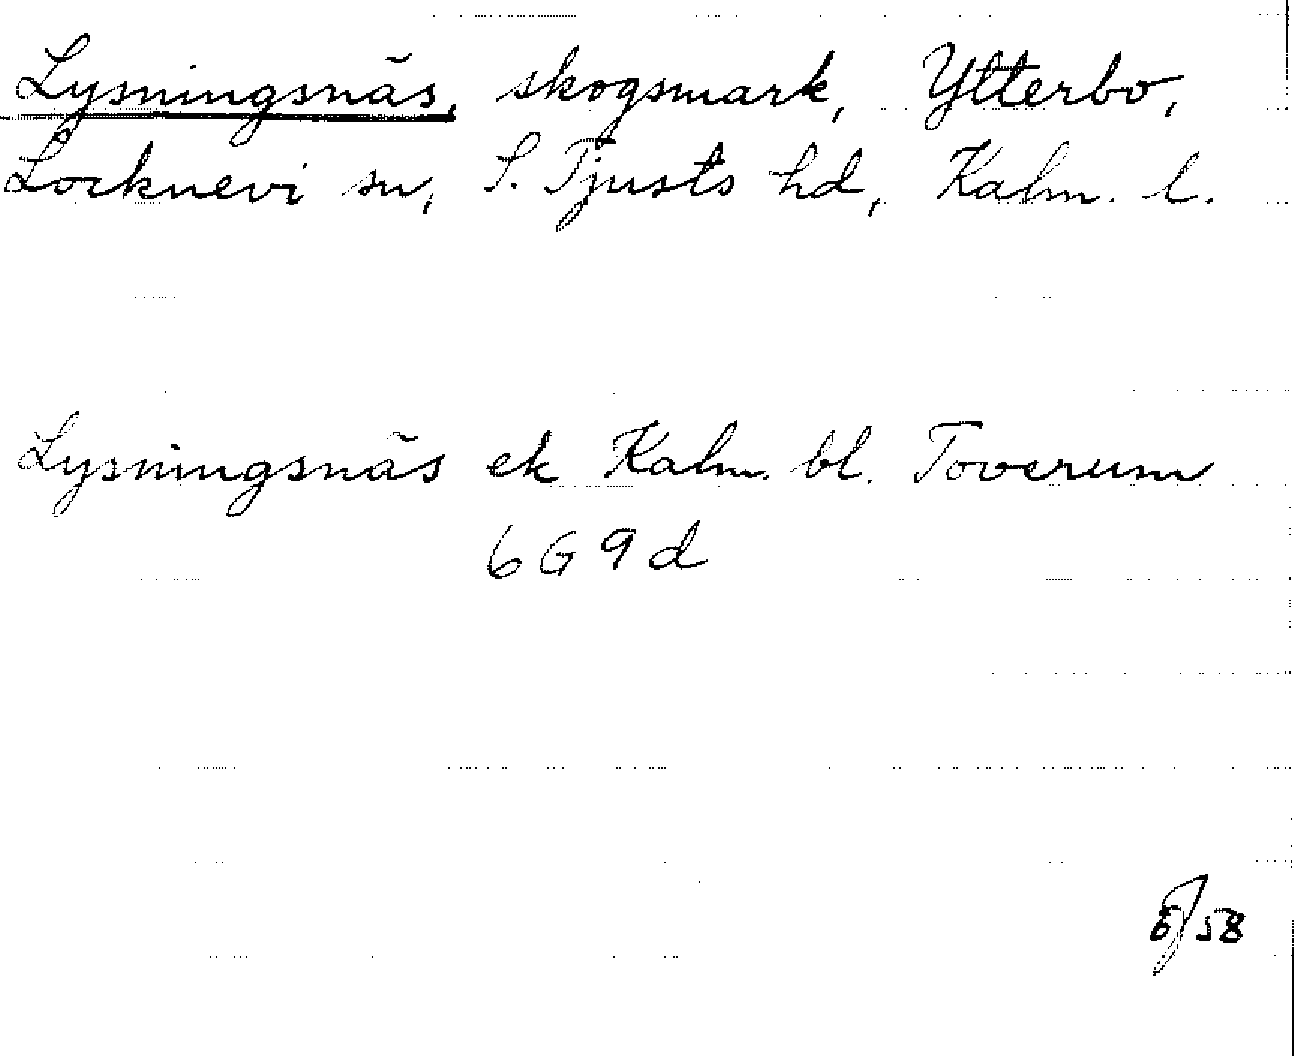 Lysningsnäs, skogsmark, Ytterbo,
Locknevi sn, S. Tjusts hd, Kalm. l.
Lysningsnäs ek Kalm. bl. Toverum
6G9d